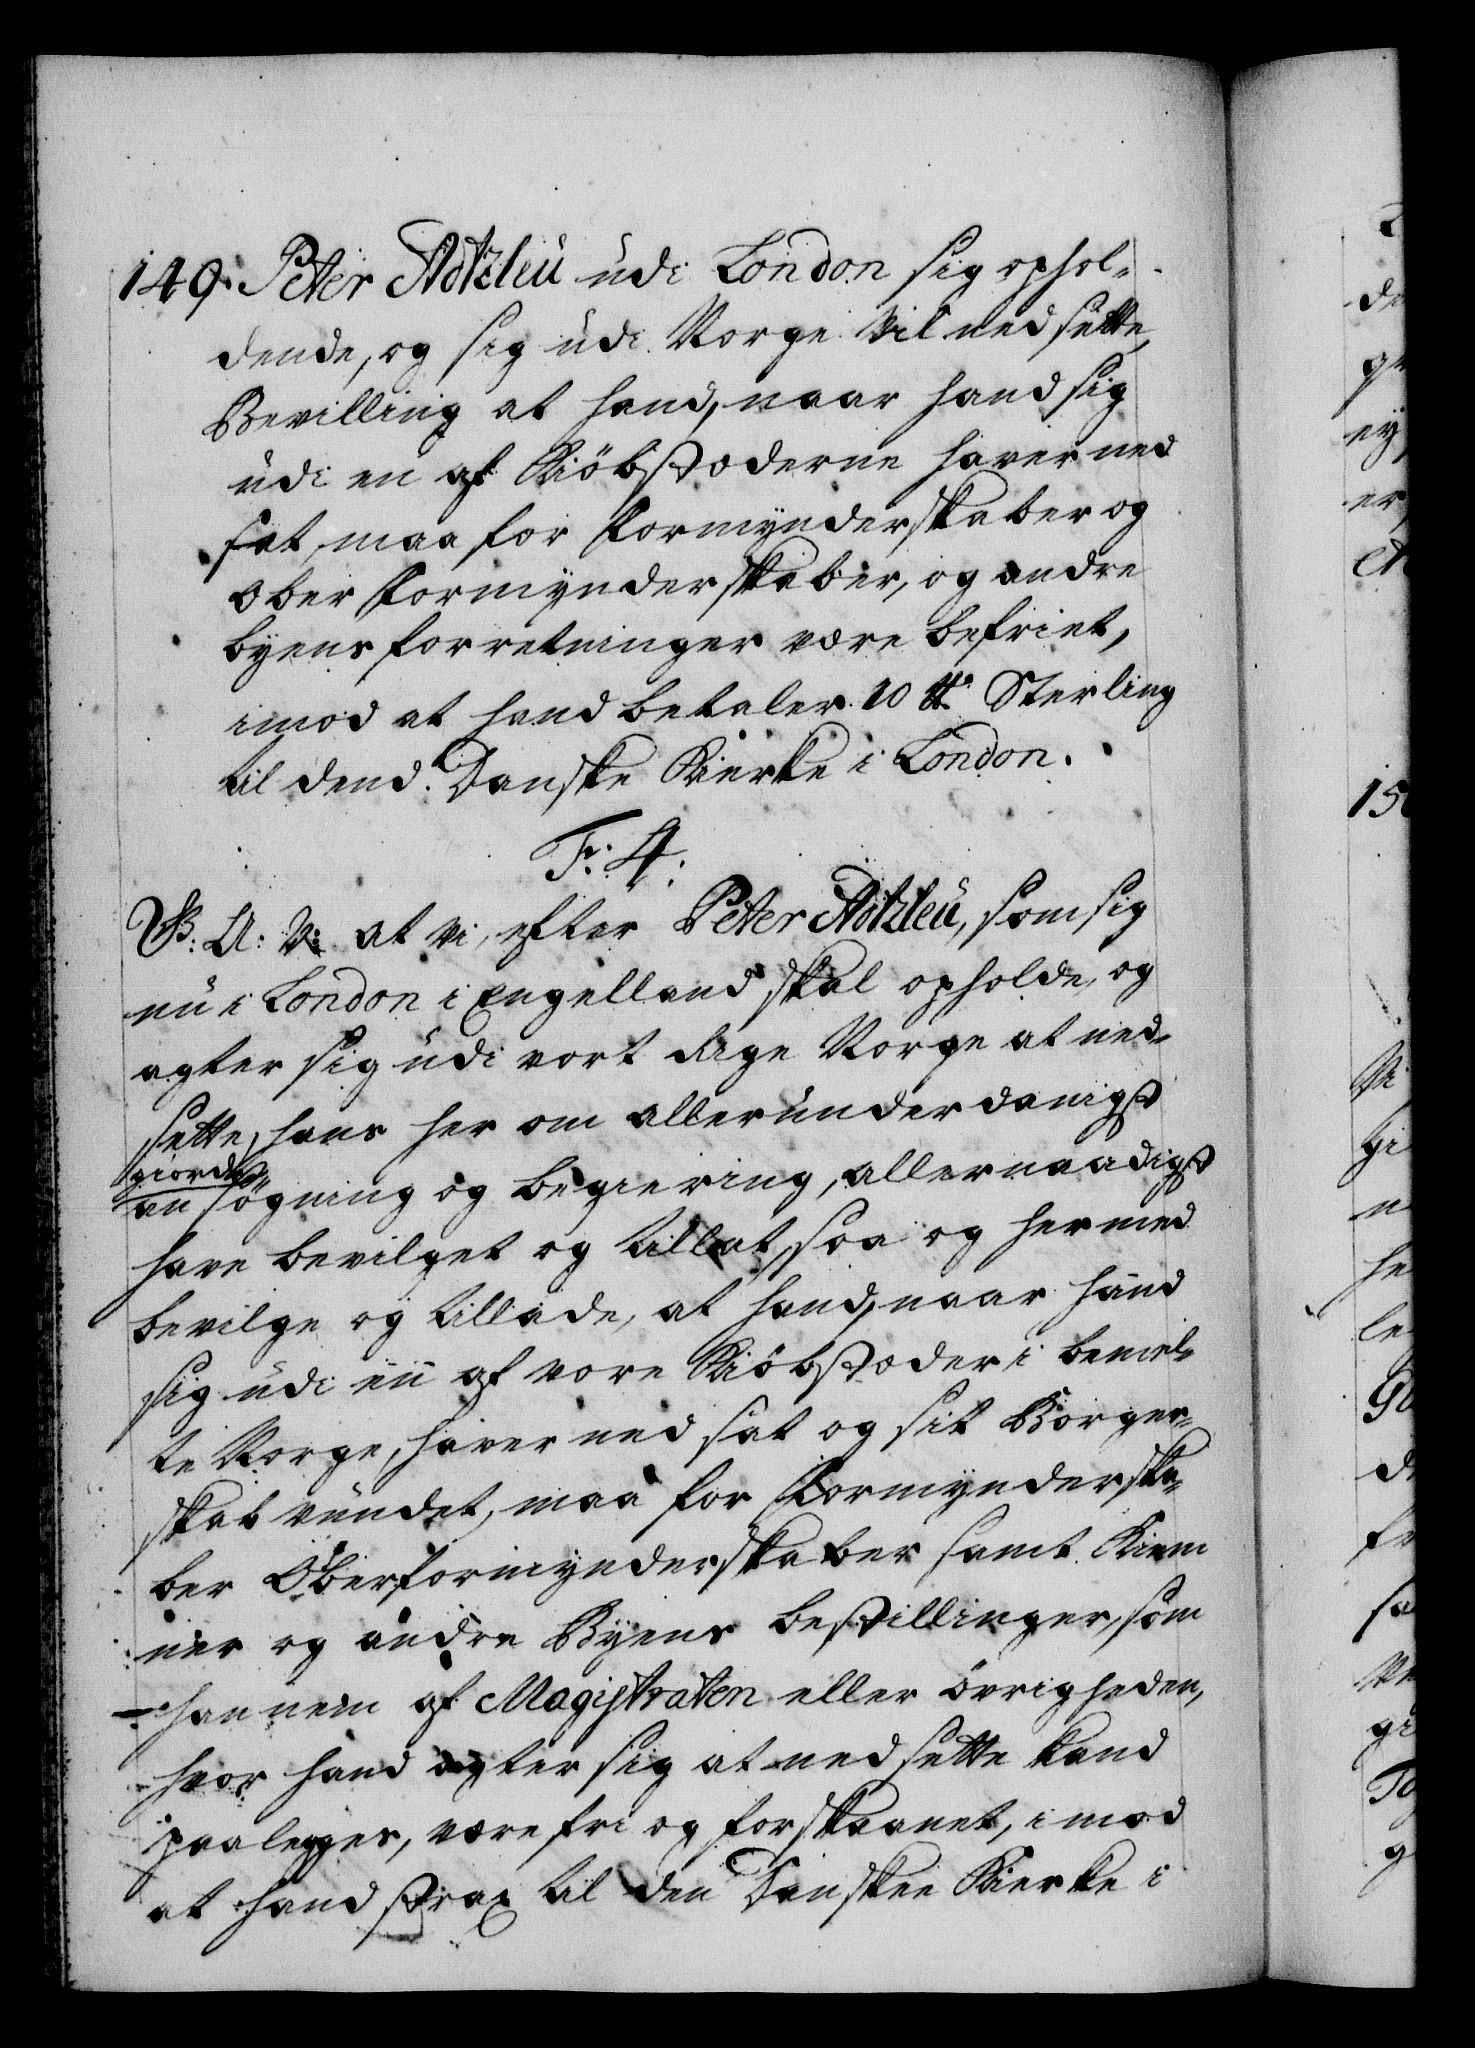 149. Peter Adtzleu udi London sig ophol-
dende, og sig udi Norge vil nedsette,
Bevilling at hand, naar hand sig
udi en af Kiöbstæderne haver ned
sat, maa for Formynderskaber og
Ober Formynderskaber, og andre
byens forretninger være befriet,
imod at hand betaler 10 ℔ Sterling
til dend Danske Kierke i London.
F: 4.
G: A: V: at vi, efter Peter Adtzleu, som sig
nu i London i Engelland skal opholde, og
agter sig udi vort Rige Norge at ned-
sette, hans her om allerunderdanigst
giorde
ansögning og begiering, allernaadigst
have bevilget og tilladt, saa og hermed
bevilge og tillade, at hand, naar hand
sig udi een af vore Kiöbstæder i bemel-
te Norge, haver nedsat og sit Borger-
skab vundet, maa for Formynderska-
ber Oberformynderskaber samt Kiem
ner og andre Byens bestillinger, som
hannem af Magistraten eller övrigheden,
hvor hand agter sig at nedsette kand
paalegges, være fri og forskaanet, imod
at hand strax til den Danske Kierke i